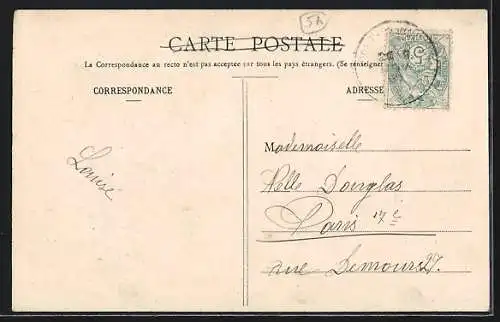 5A
CARTE POSTALE
La Correspondance au recto n'est pas acceptée par tous les pays étrangers. (Se renseigner
CORRESPONDANCE
ADRESSE
Mademoiselle
Nelle Douglas
Paris 17e
rue Demours 27.
Louise